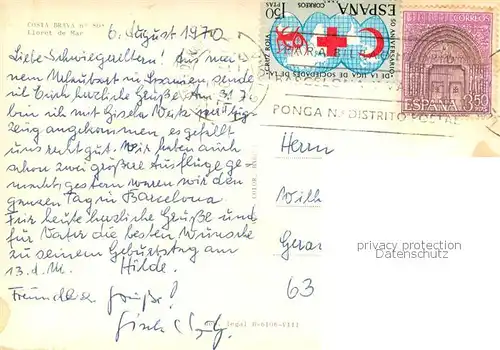 COSTA BRAVA nº 896
Lloret de Mar
6. August 1970
Liebe Schwiegereltern! Aus mei-
nem Urlaubsort in Spanien, sende
ich Euch herzliche Grüße. Am 31.7.
bin ich mit Gisela mit Flug-
zeug angekommen, es gefällt
uns recht gut. Wir haben auch
schon zwei größere Ausflüge ge-
macht, gestern waren wir den
ganzen Tag in Barcelona.
Für heute herzliche Grüße und
für Vater die besten Wünsche
zu seinem Geburtstag am
13. d. M. Hilde.
Freundliche Grüße!
50 ANIVERSARIO
DE LA LIGA DE SOCIEDADES DE LA
CRUZ ROJA
1,50
PTAS
CORREOS
ESPAÑA
CORREOS
ESPAÑA
3,50
PONGA N.º DISTRITO POSTAL
Herrn
Wilh
Gerar
63
privacy protection
Datenschutz